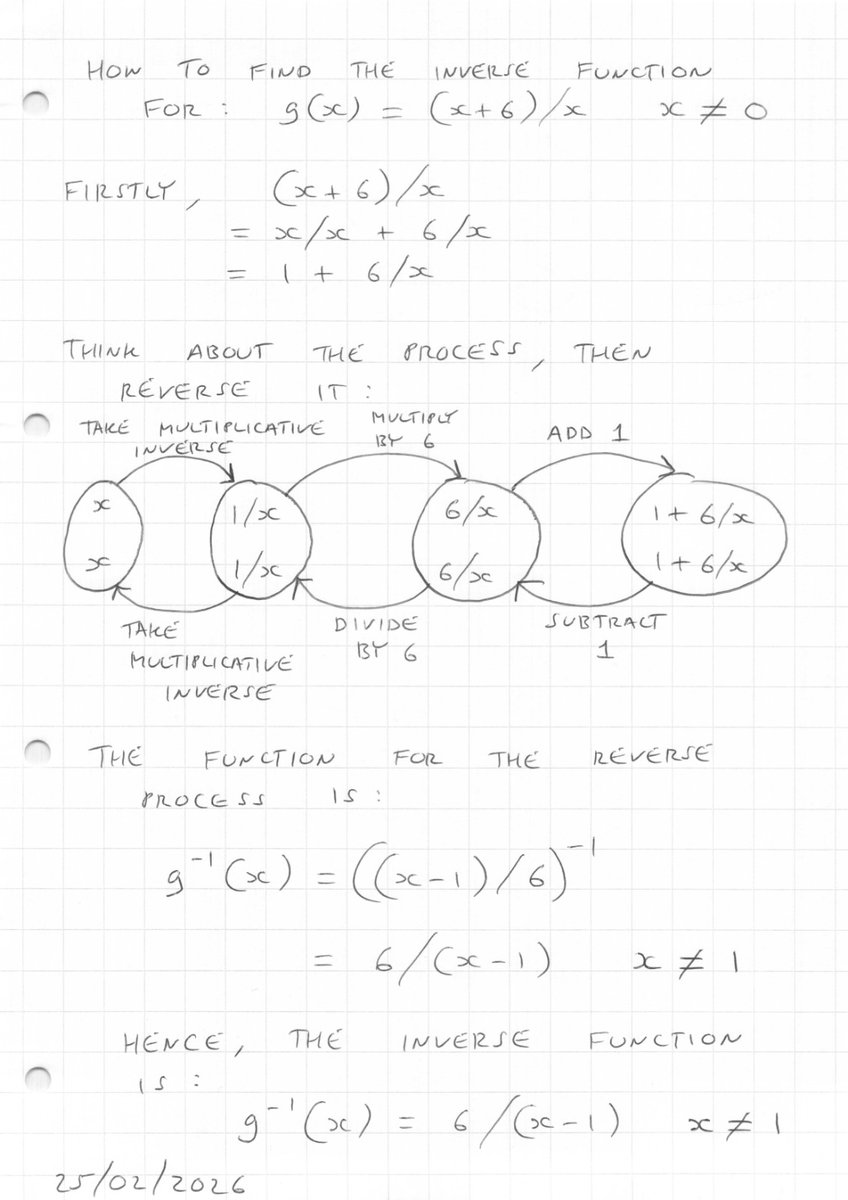 HOW TO FIND THE INVERSE FUNCTION
FOR : g(x) = (x+6)/x x ≠ 0
FIRSTLY, (x+6)/x
= x/x + 6/x
= 1 + 6/x
THINK ABOUT THE PROCESS, THEN
REVERSE IT :
TAKE MULTIPLICATIVE
INVERSE
MULTIPLY
BY 6
ADD 1
x 1/x 6/x 1 + 6/x
x 1/x 6/x 1 + 6/x
TAKE
MULTIPLICATIVE
INVERSE
DIVIDE
BY 6
SUBTRACT
1
THE FUNCTION FOR THE REVERSE
PROCESS IS :
g⁻¹(x) = ((x-1)/6)⁻¹
= 6/(x-1) x ≠ 1
HENCE, THE INVERSE FUNCTION
IS :
g⁻¹(x) = 6/(x-1) x ≠ 1
25/02/2026